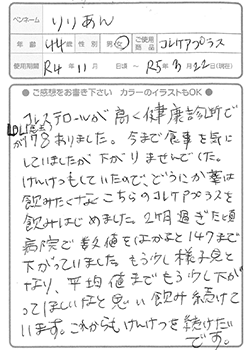 ペンネーム りりあん
年齢 44才 性別 男・女 ご使用商品 コレケアプラス
使用期間 R4年11月 日頃 ～ R5年3月22日(現在)
●ご感想をお書き下さい カラーのイラストもOK●
コレステロールが高く健康診断で
LDL(悪玉)が178ありました。今まで食事を気に
していましたが下がりませんでした。
けんけつもしていたので、どうにか薬は
飲みたくなくこちらのコレケアプラスを
飲みはじめました。2か月過ぎた頃
病院で数値をはかると147まで
下がっていました。もう少し様子見と
なり、平均値までもう少し下が
ってほしいなと思い飲み続けて
います。これからもけんけつを続けたい
です。